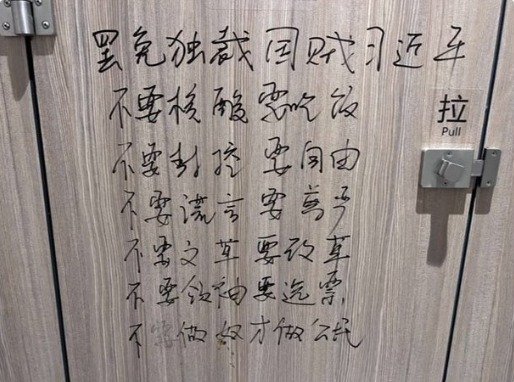 罢免独裁国贼习近平
不要核酸要吃饭
拉
Pull
不要封控要自由
不要谎言要尊严
不要文革要改革
不要领袖要选票
不做奴才做公民